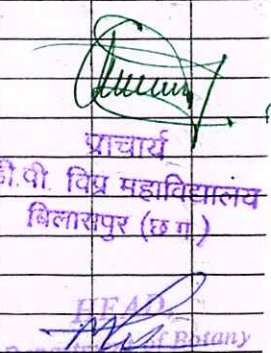 प्राचार्य
डी.पी. विप्र महाविद्यालय
बिलासपुर (छ.ग.)
HEAD
of Botany